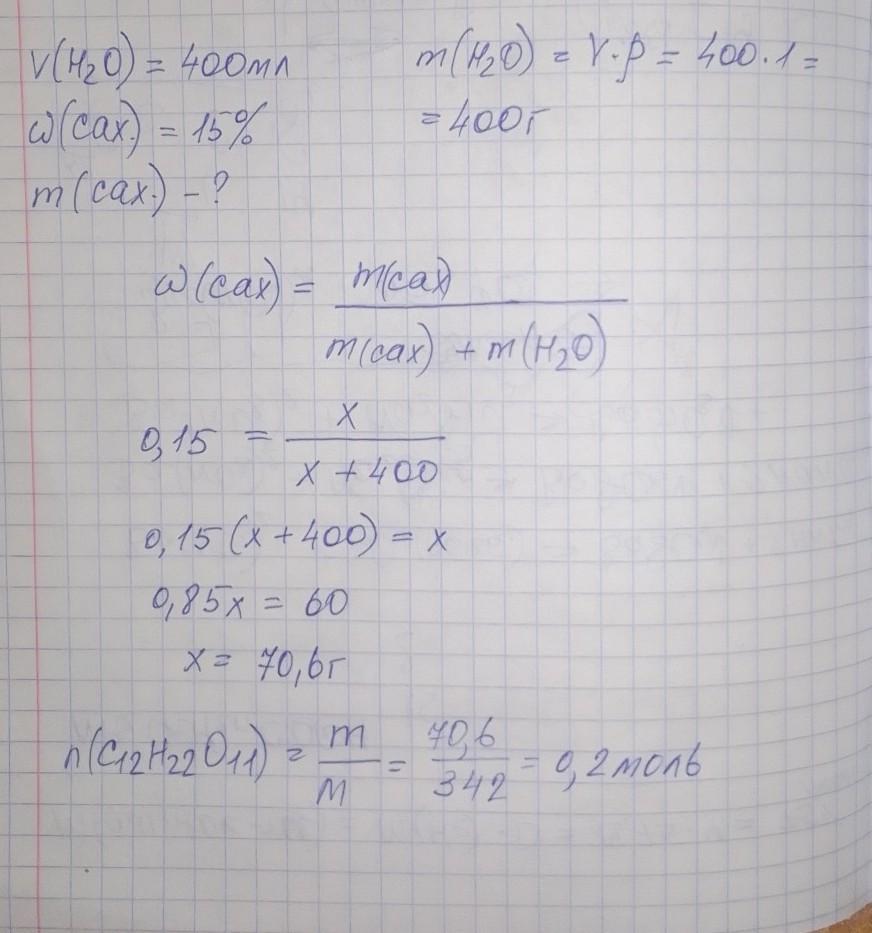 V(H₂O) = 400мл
ω(сах.) = 15%
m(сах.) - ?
m(H₂O) = V·ρ = 400·1 =
= 400г
ω(сах) = m(сах) / m(сах) + m(H₂O)
0,15 = x / x + 400
0,15(x + 400) = x
0,85x = 60
x = 70,6г
n(C₁₂H₂₂O₁₁) = m / M = 70,6 / 342 = 0,2 моль